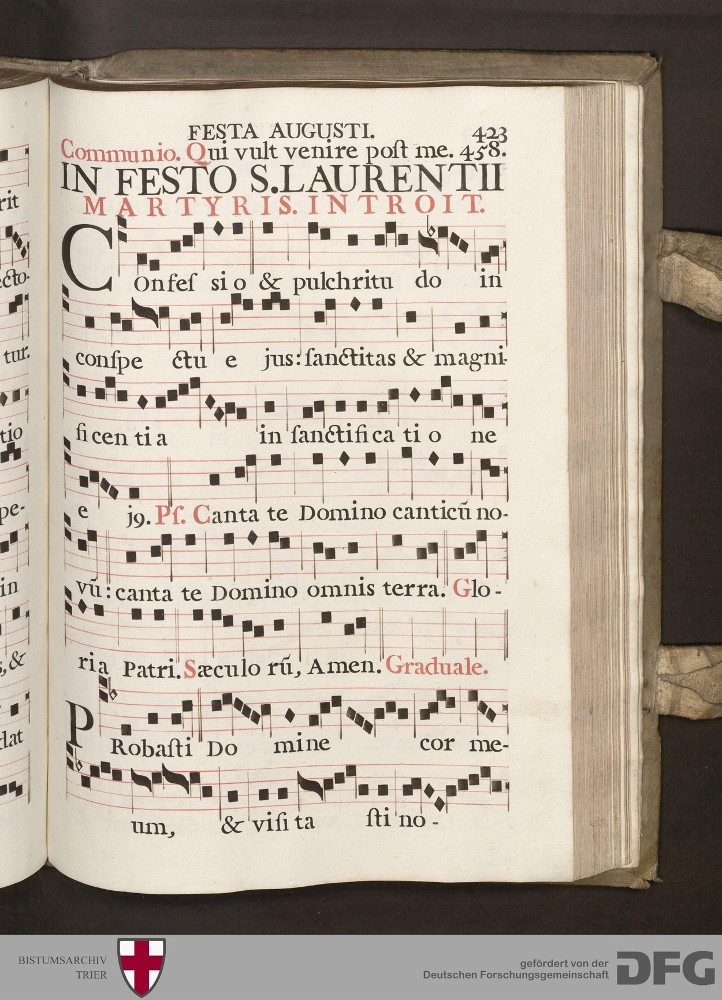 FESTA AUGUSTI. 423
Communio. Qui vult venire poſt me. 458.
IN FESTO S. LAURENTII
MARTYRIS. INTROIT.
COnfeſ sio & pulchritu do in
conſpe ctu e jus: ſanctitas & magni-
ficen tia in ſanctifica tio ne
e j9. Pſ. Canta te Domino canticū no-
vū: canta te Domino omnis terra. Glo-
ria Patri. Sæculo rū, Amen. Graduale.
PRobaſti Do mine cor me-
um, & viſita ſti no-
rit
ecto-
tur.
tio
pe-
in
s, &
dat
BISTUMSARCHIV
TRIER
gefördert von der
Deutschen Forschungsgemeinschaft
DFG